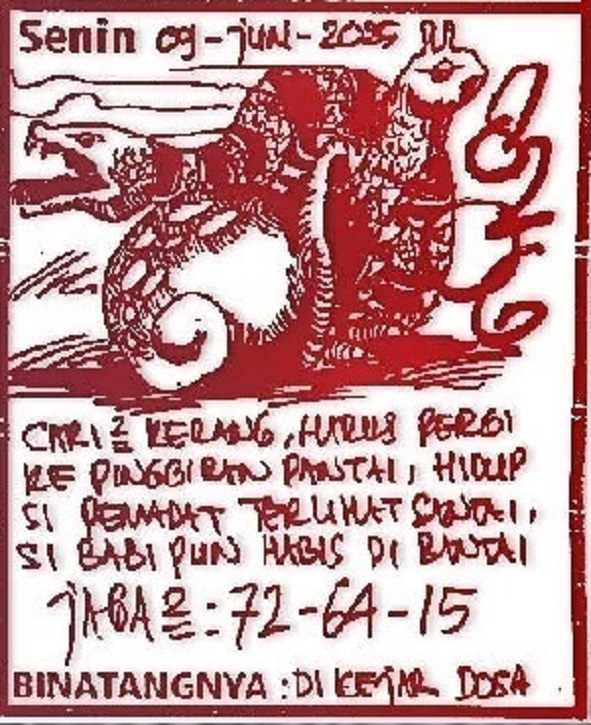 Senin 09-juni-2025
CARI2 KERANG, HARUS PERGI
KE PINGGIRAN PANTAI, HIDUP
SI PEMADAT TERLIHAT SANTAI,
SI BABI PUN HABIS DI BANTAI
JAGA2: 72-64-15
BINATANGNYA : DI KEJAR DOSA